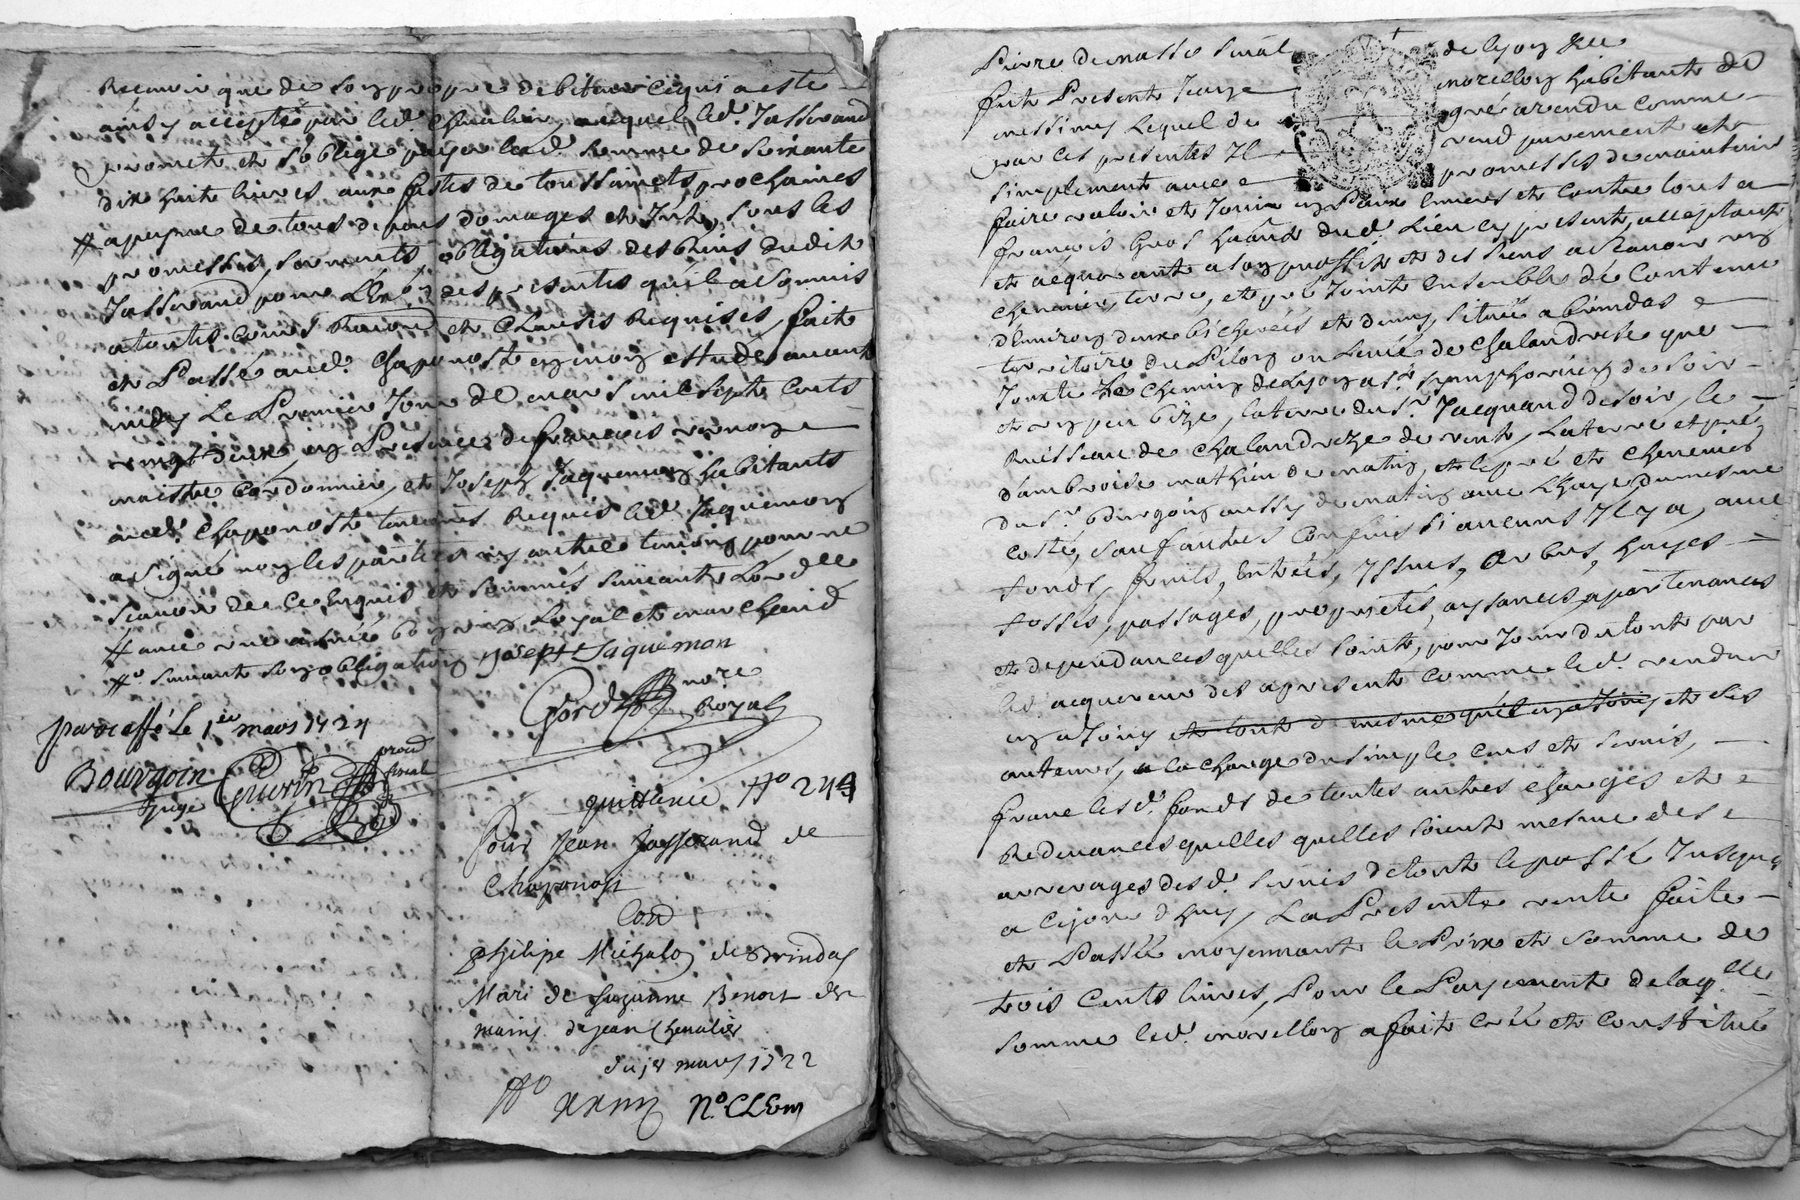 Recevoir que de son propre debiteur ce qui a esté
ainsy accepté par led. Chevalier, auquel led. Jasserand
promet et s'oblige payer lad. somme de soixante
dix huit livres aux festes de toussaincts prochaines
a peyne de tous depans domages et Intr. sous les
promesses, sermnts obligations des biens dudit
Jasserand pour des presentes qu'il a soumis
a toutes cours et Clauses Requises, fait
et Passé aud. Chaponost en mon estude avant
midy Le Premier Jour de mars mil sept cents
vingt deux, en Presence de francois
maistre Cordonnier, et Joseph Jaquemon habitants
aud. Chaponost temoins Requis led. Jaquemon
a signé non les parties ny autre temoin pour ne
scavoir de ce Enquis et sommés suivant L'ord
Royal et marchand
suivant son obligation Joseph Jaquemon
nore
Royal
paraffé Le 1er mars 1724
Bourgoin
Juge
Guerin
quittance No 244
Pour Jean Jasserand de
Chaponost
Con
Philipe Michalon de Brindas
Mari de Suzanne Benoit des
mains de Jean Chevalier
du 1r mars 1722
No CLEm
Pierre de masso senal de lyon
fut Present morellon habitant de
messimy Lequel de gré a vendu comme
par ces presentes Il vend purement et
simplement avec promesses de maintenir
faire valoir et Jouir en Paix Envers et Contre tous a
francois Gros dud. Lieu cy present, acceptant
et acquerant a son proffit et des siens a scavoir un
chenevier, terre, et pré Joint Ensemble de Contenu
d'Environ deux bicherées et demy, situé a brindas
territoire du Pilon ou Levée de Chalandrese que
Jouxte Le chemin de Lyon a St. Symphorien de soir
et un peu bize, la terre du Sr. Jacquand de soir, le
Ruisseau de Chalandreze de vent, La terre et pré
d'ambroise mathieu de matin, et le pré et chenevier
du Sr. bourgoin aussy de matin avec L'haye du mesme
costé, sauf autres Confins si aucuns Il y a, avec
fonds, fruits, Entrées, Issues, Arbres, hayes
fossés, passages, proprietés, aysances, apartenances
et dependances quelles soint, pour Jouir du tout par
led. acquereur des apresent comme led. vendeur
en a Jouy et tout de mesme qu'il en a Jouy et ses
auteurs, a la charge du simple cens et servis,
franc lesd. fonds de toutes autres charges et
Redevances quelles quelles soient mesme des
arrerages desd. servis de tout le passé Jusques
a ce jour d'huy, La Presente vente faite
et Passée moyennant le Prix et somme de
trois Cents livres, Pour le Payement de laqlle
somme led. morellon a fait Créé et Constitué